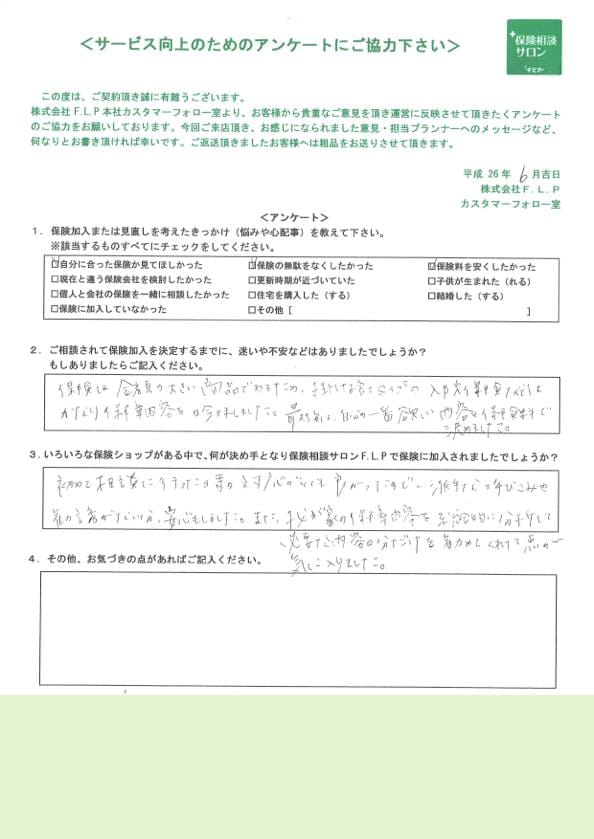 ＜サービス向上のためのアンケートにご協力下さい＞
保険相談
サロン
この度は、ご契約頂き誠に有難うございます。
株式会社F.L.P本社カスタマーフォロー室より、お客様から貴重なご意見を頂き運営に反映させて頂きたくアンケート
のご協力をお願いしております。今回ご来店頂き、お感じになられました意見・担当プランナーへのメッセージなど、
何なりとお書き頂ければ幸いです。ご返送頂きましたお客様へは粗品をお送りさせて頂きます。
平成 26 年 6 月吉日
株式会社F.L.P
カスタマーフォロー室
＜アンケート＞
1．保険加入または見直しを考えたきっかけ（悩みや心配事）を教えて下さい。
※該当するものすべてにチェックをしてください。
☑自分に合った保険か見てほしかった ☑保険の無駄をなくしたかった ☑保険料を安くしたかった
□現在と違う保険会社を検討したかった □更新時期が近づいていた □子供が生まれた（れる）
□個人と会社の保険を一緒に相談したかった □住宅を購入した（する） □結婚した（する）
□保険に加入していなかった □その他［ ］
2．ご相談されて保険加入を決定するまでに、迷いや不安などはありましたでしょうか？
もしありましたらご記入ください。
保険は金額の大きい商品であるため、掛け捨てタイプの
かなり保障内容を吟味しました。最終的に、自分の一番欲しい内容と保険料で
決めました。
3．いろいろな保険ショップがある中で、何が決め手となり保険相談サロンF.L.Pで保険に加入されましたでしょうか？
初めて相談に行った日の対応がとても良かったので。派手な呼びこみや
勧誘がない分、安心もしました。また、我が家の保障内容を総合的に分析して
必要な内容の分だけを勧めてくれた点が
気に入りました。
4．その他、お気づきの点があればご記入ください。